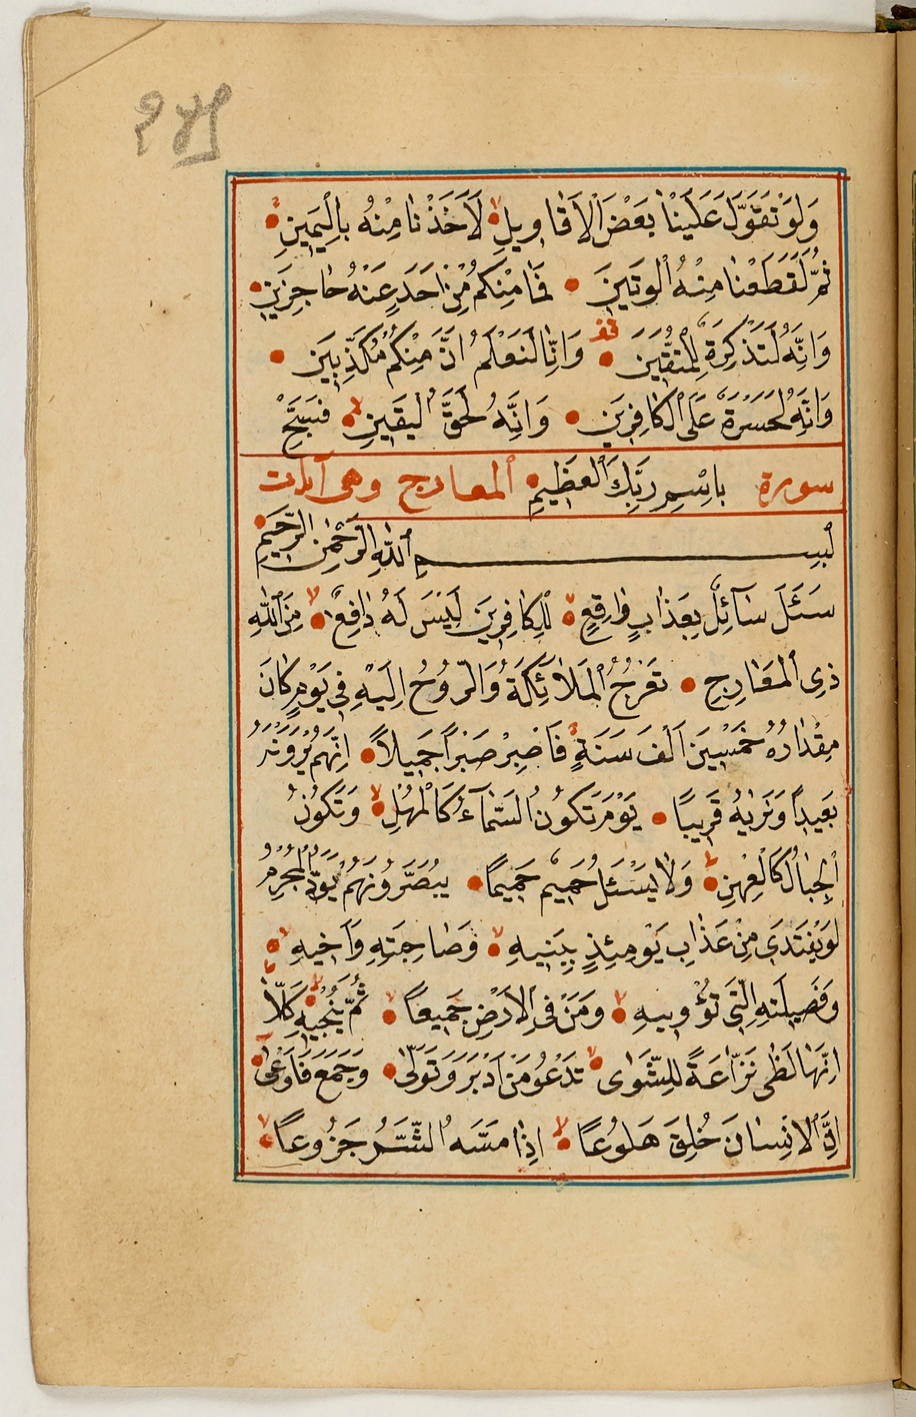 وَلَوْ تَقَوَّلَ عَلَيْنَا بَعْضَ الْاَقَاوِيلِ لَاَخَذْنَا مِنْهُ بِالْيَمِينِ
ثُمَّ لَقَطَعْنَا مِنْهُ الْوَتِينَ فَمَا مِنْكُمْ مِنْ اَحَدٍ عَنْهُ حَاجِزِينَ
وَاِنَّهُ لَتَذْكِرَةٌ لِلْمُتَّقِينَ وَاِنَّا لَنَعْلَمُ اَنَّ مِنْكُمْ مُكَذِّبِينَ
وَاِنَّهُ لَحَسْرَةٌ عَلَى الْكَافِرِينَ وَاِنَّهُ لَحَقُّ الْيَقِينِ فَسَبِّحْ
سورة بِاسْمِ رَبِّكَ الْعَظِيمِ المعارج وهى آيات
بِسْمِ اللّٰهِ الرَّحْمٰنِ الرَّحِيمِ
سَئَلَ سَآئِلٌ بِعَذَابٍ وَاقِعٍ لِلْكَافِرِينَ لَيْسَ لَهُ دَافِعٌ مِنَ اللّٰهِ
ذِى الْمَعَارِجِ تَعْرُجُ الْمَلَائِكَةُ وَالرُّوحُ اِلَيْهِ فِى يَوْمٍ كَانَ
مِقْدَارُهُ خَمْسِينَ اَلْفَ سَنَةٍ فَاصْبِرْ صَبْرًا جَمِيلًا اِنَّهُمْ يَرَوْنَهُ
بَعِيدًا وَنَرٰيهُ قَرِيبًا يَوْمَ تَكُونُ السَّمَآءُ كَالْمُهْلِ وَتَكُونُ
الْجِبَالُ كَالْعِهْنِ وَلَا يَسْئَلُ حَمِيمٌ حَمِيمًا يُبَصَّرُونَهُمْ يَوَدُّ الْمُجْرِمُ
لَوْ يَفْتَدِى مِنْ عَذَابِ يَوْمِئِذٍ بِبَنِيهِ وَصَاحِبَتِهِ وَاَخِيهِ
وَفَصِيلَتِهِ الَّتِى تُؤْوِيهِ وَمَنْ فِى الْاَرْضِ جَمِيعًا ثُمَّ يُنْجِيهِ كَلَّا
اِنَّهَا لَظٰى نَزَّاعَةً لِلشَّوٰى تَدْعُو مَنْ اَدْبَرَ وَتَوَلّٰى وَجَمَعَ فَاَوْعٰى
اِنَّ الْاِنْسَانَ خُلِقَ هَلُوعًا اِذَا مَسَّهُ الشَّرُّ جَزُوعًا